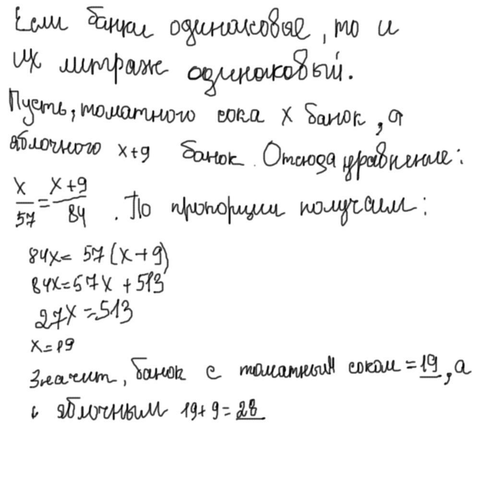 Если банки одинаковые, то и
их литраж одинаковый.
Пусть, томатного сока x банок, а
яблочного x+9 банок. Отсюда уравнение:
x/57 = x+9/84. По пропорции получаем:
84x = 57(x+9)
84x = 57x + 513
27x = 513
x = 19
Значит, банок с томатным соком = 19, а
с яблочным 19+9 = 28